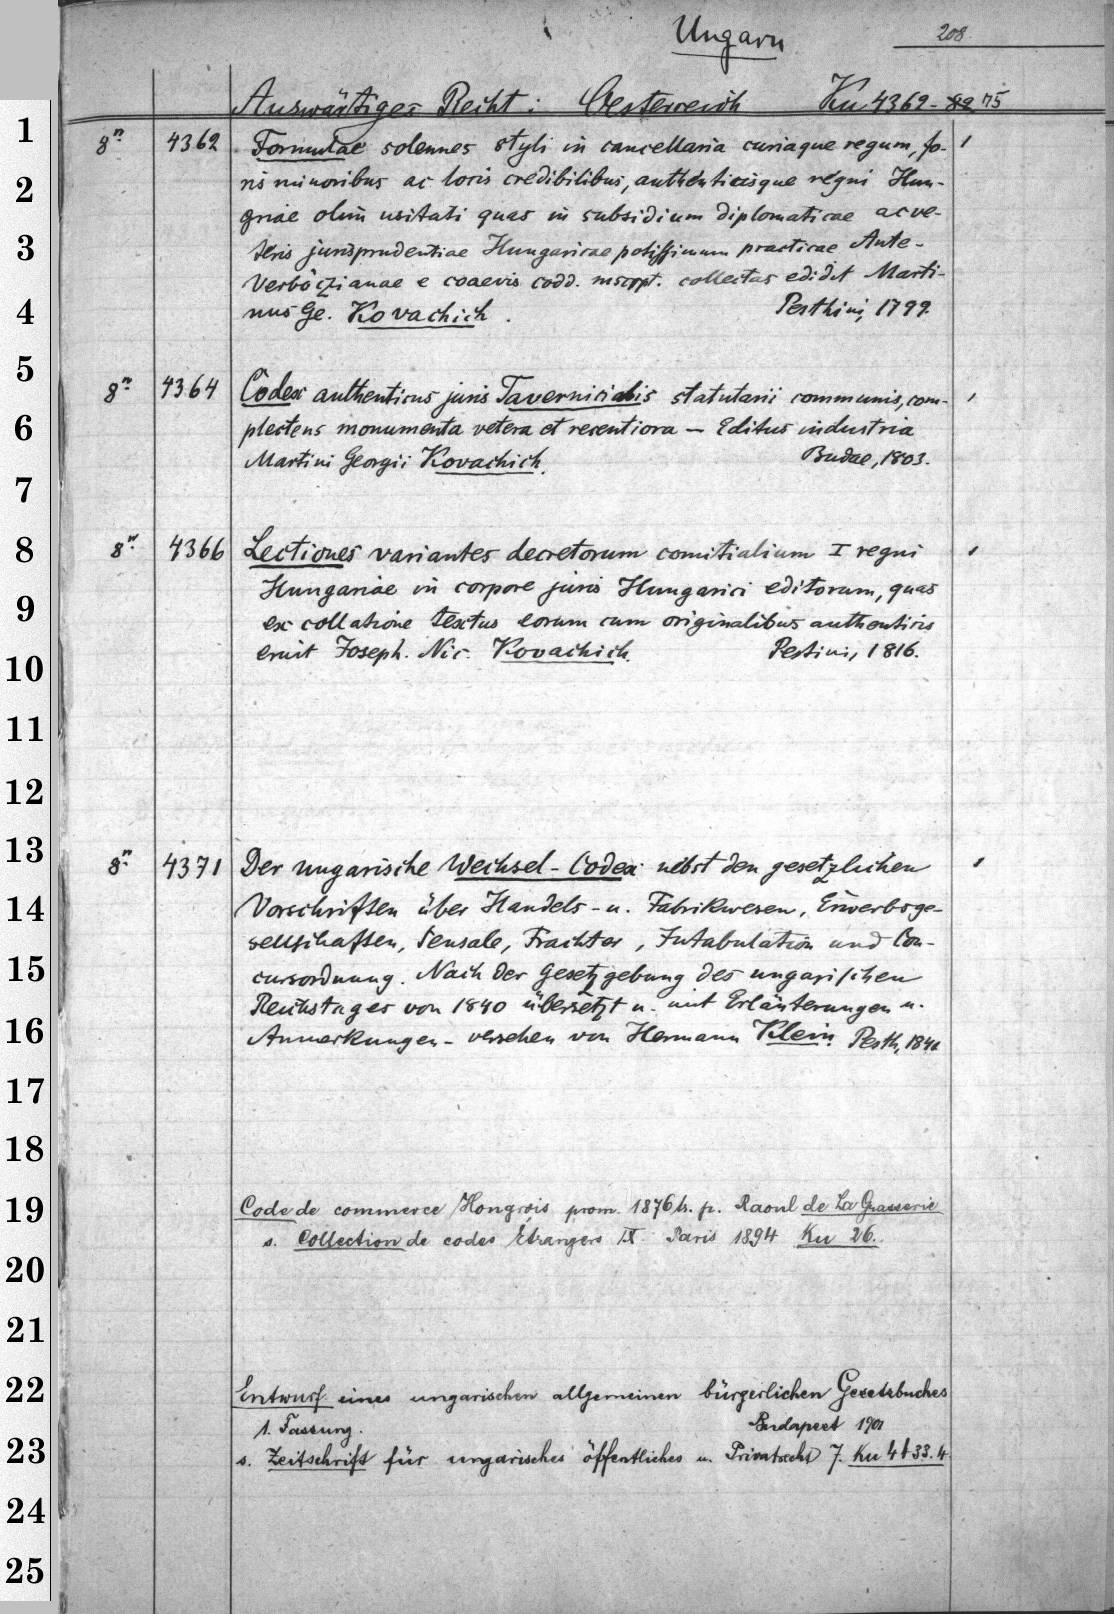 Ungarn
208.
Auswärtiges Recht: Oesterreich Ku 4362-82 75
8º 4362 Formulae solennes styli in cancellaria curiaque regum, fo- 1
ris minoribus ac locis credibilibus, authenticisque regni Hun-
gariae olim usitati quas in subsidium diplomaticae ac ve-
teris jurisprudentiae Hungaricae potissimum practicae Ante-
Verböczianae e coaevis codd. mscpt. collectas edidit Marti-
nus Ge. Kovachich. Pesthini, 1799.
8º 4364 Codex authenticus juris Tavernicialis statutarii communis, com- 1
plectens monumenta vetera et recentiora – Editus industria
Martini Georgii Kovachich. Budae, 1803.
8º 4366 Lectiones variantes decretorum comitialium I regni 1
Hungariae in corpore juris Hungarici editorum, quas
ex collatione textus eorum cum originalibus authenticis
eruit Joseph. Nic. Kovachich. Pestini, 1816.
8º 4371 Der ungarische Wechsel-Codex nebst den gesetzlichen 1
Vorschriften über Handels- u. Fabrikwesen, Erwerbsge-
sellschaften, Sensale, Frachter, Intabulation und Con-
cursordnung. Nach der Gesetzgebung des ungarischen
Reichstages von 1840 übersetzt u. mit Erläuterungen u.
Anmerkungen – versehen von Hermann Klein. Pesth,
Code de commerce Hongrois prom. 1876 tr. p. Raoul de La Grasserie
s. Collection de codes Étrangers IX Paris 1894 Ku 26.
Entwurf eines ungarischen allgemeinen bürgerlichen Gesetzbuches
1. Fassung. Budapest 1901
s. Zeitschrift für ungarisches öffentliches u. Privatrecht 7. Ku
1
2
3
4
5
6
7
8
9
10
11
12
13
14
15
16
17
18
19
20
21
22
23
24
25